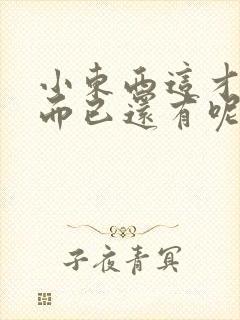 小東西這才
而已還有呢
子夜青冥